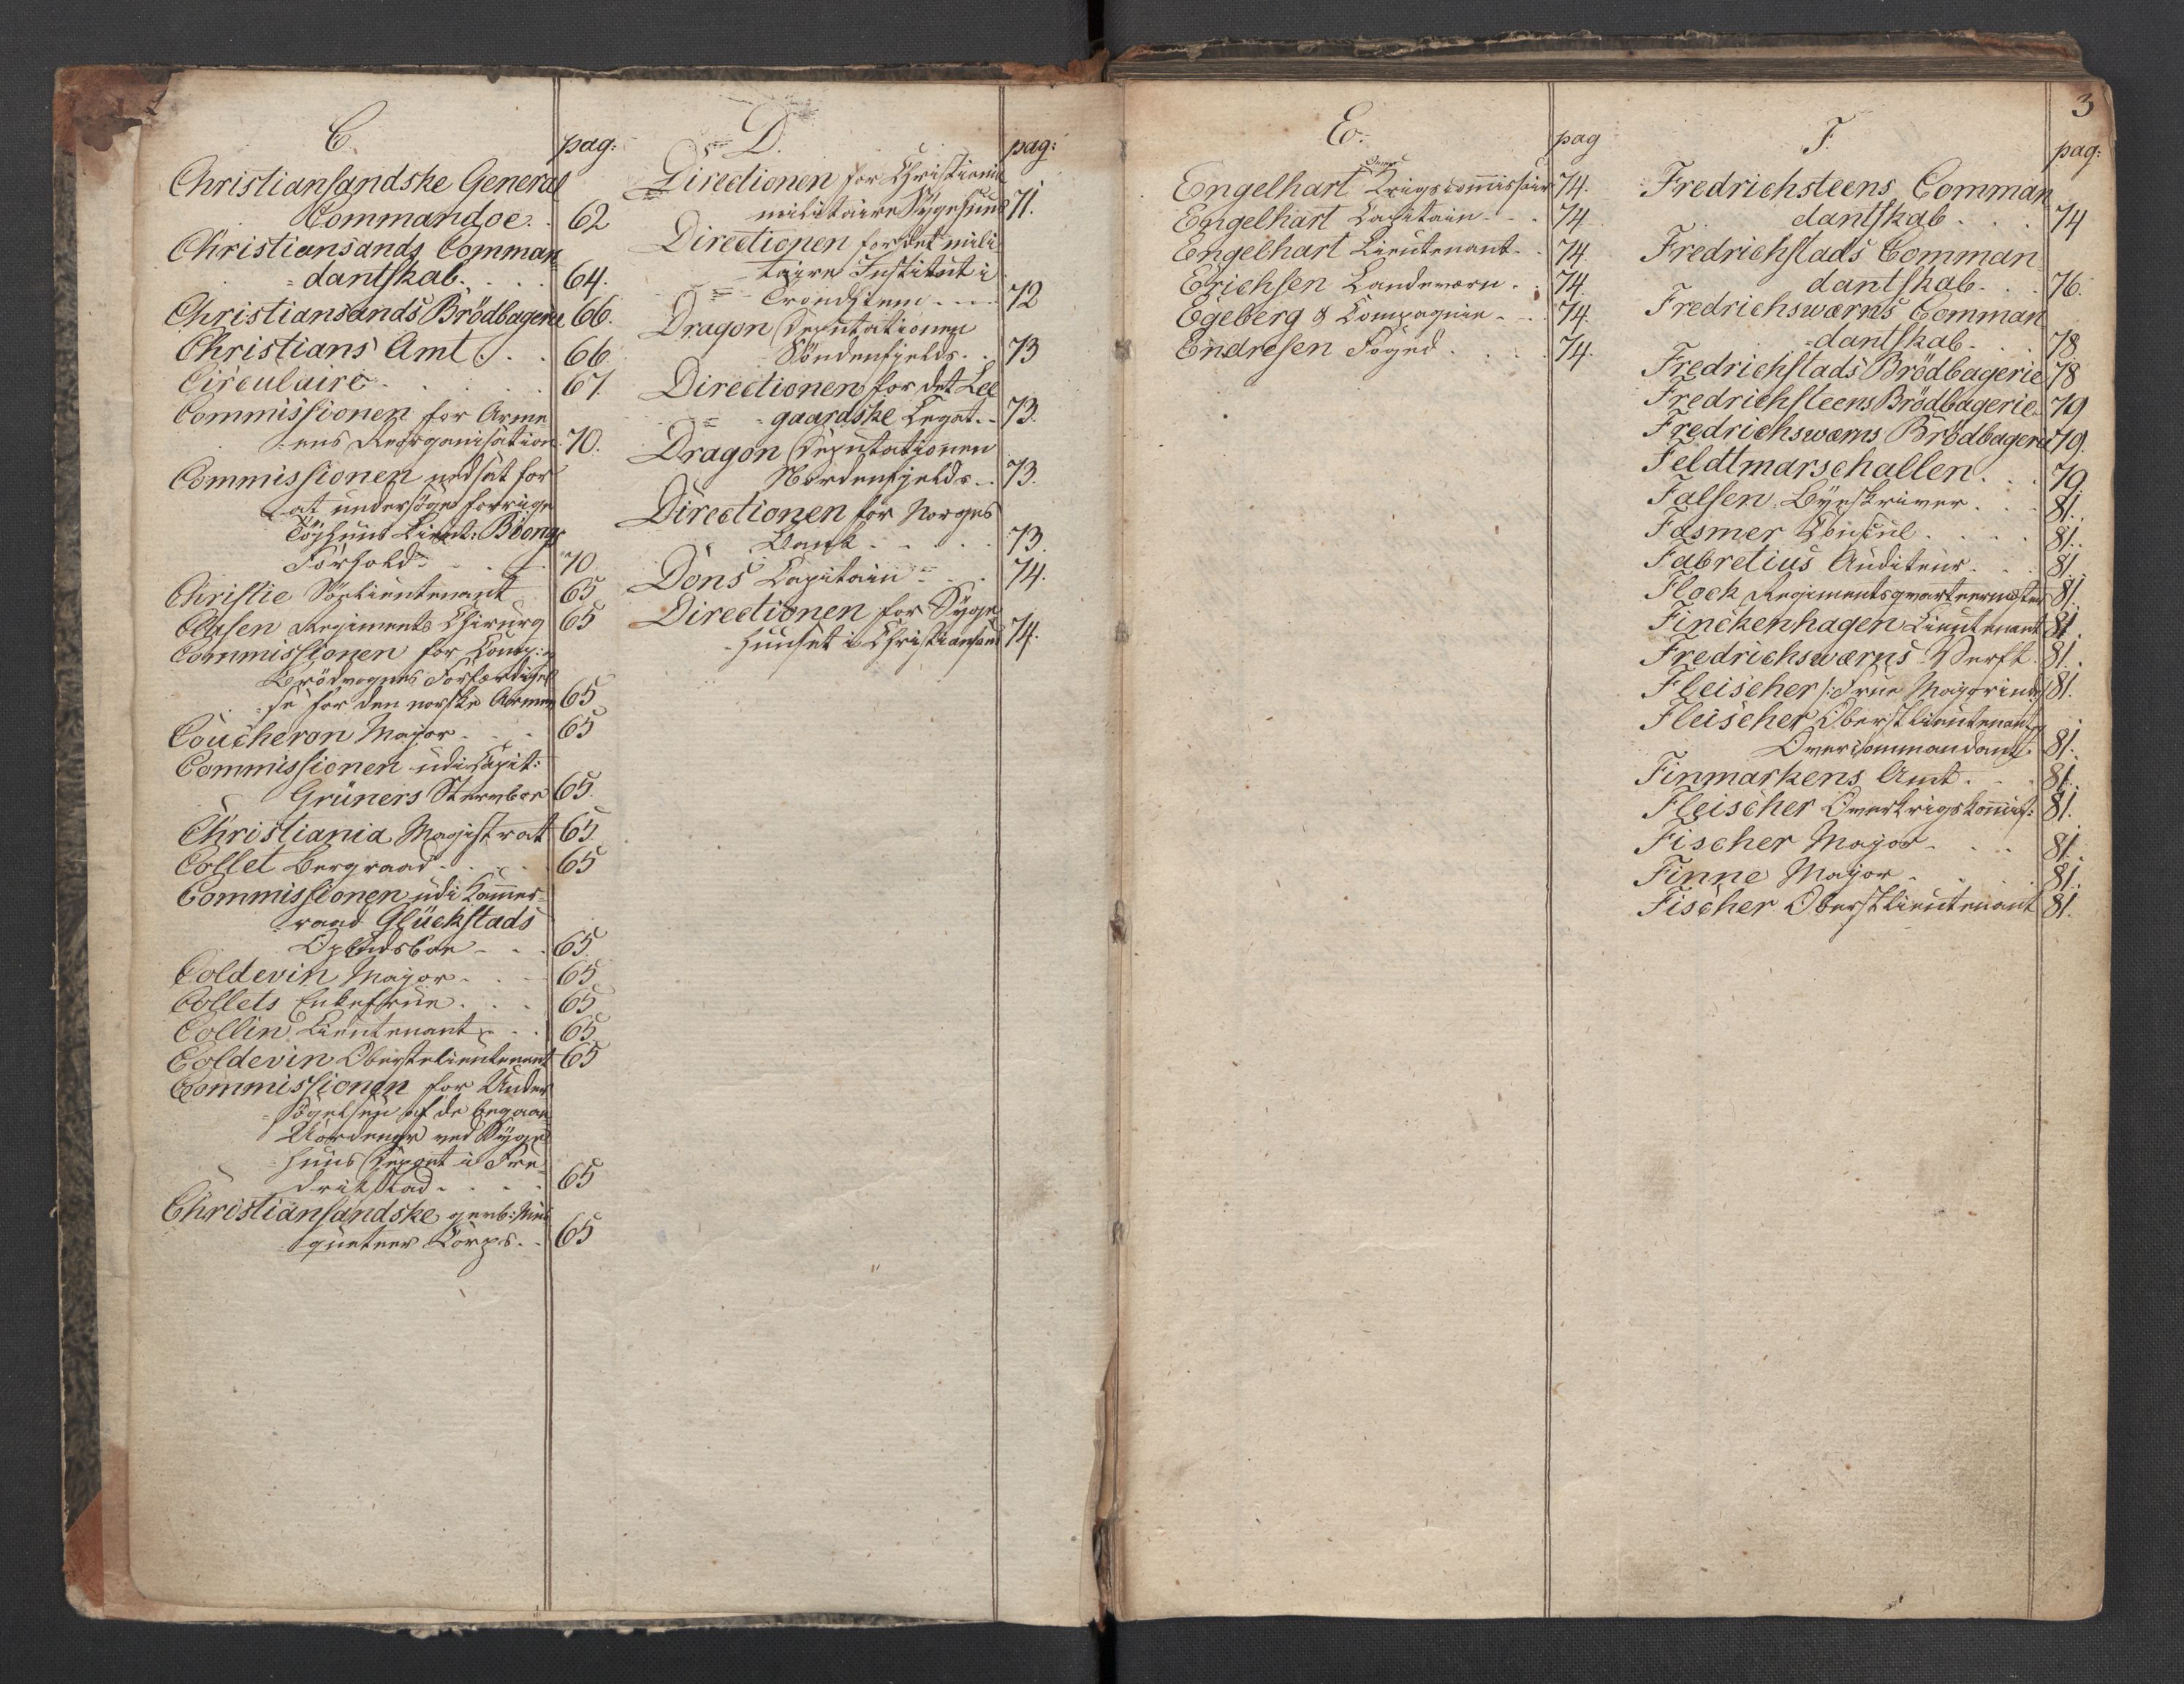 C.
pag:
Christiansandske General
Commandoe . 62
Christiansands Comman
=dantskab . . . . 64.
Christiansands Brödbagerie 66.
Christians Amt . . . 66
Circulaire . . . . . 67.
Commissionen for Arme
=ens Reorganisation 70.
Commissionen nedsat for
at undersöge forrige
Töyhuus Lieut: Boongs
Forhold . . . . 70
Christie Söelieutenant 65
Clasen Regiments Chirurg 65
Commissionen for Comp:
Brödvognes Forfærdigel
=se for den norske Armee 65
Coucheron Major . . . 65
Commissionen udi Capit:
Grüners Stervboe 65.
Christiania Magistrat 65
Collet Bergraad . . . 65
Commissionen udi Kammer=
=raad Glückstads
Opbudsboe - - . 65.
Coldevin Major . . - 65
Collets Enkefrue . . . 65
Collin Lieutenant . . . 65.
Coldevin Oberstelieutenant 65
Commissionen for Under
=sögelsen af de begaae
Uordener ved Syge
=huus Depoet i Fre=
drikstad . . . . 65
Christiansandske gevb: Mus
=queteer Corps . . 65
D.
pag:
Directionen for Christiania
militaire Sygehuus 71.
Directionen for det mili
=taire Institut i
Trondhiem . . . . 72
Dragon Deputationen
Söndenfjelds . . 73
Directionen for det Lee
=gaardske Legat . - 73.
Dragon Deputationen
Nordenfjelds . . 73.
Directionen for Norges
Bank . . . . . 73.
Dons Capitain . . . 74.
Directionen for Syge
=huuset i Christiansand 74.
E.
pag
Engelhart Krigscommissair 74.
Engelhart Capitain . . . 74
Engelhart Lieutenant . . 74.
Erichsen Landeværn . . 74.
Egeberg & Compagnie . . . 74.
Endresen Foged . . . . 74.
3
F.
pag:
Fredrichsteens Comman
dantskab . . . 74
Fredrichstads Comman=
dantskab . . . 76.
Fredrichswærns Comman
=dantskab . . . 78.
Fredrichstads Brödbagerie 78
Fredrichsteens Brödbagerie 79
Fredrichswærns Brödbagerie 79.
Feldtmarschallen . . . 79
Falsen Byeskriver . . . 81.
Fasmer Consul . . . . 81.
Fabretius Auditeur . . . 81.
Flock Regimentsqvarteermester 81.
Finckenhagen Lieutenant 81.
Fredrichswærns Værft . 81.
Fleischer /: Frue Majorinde 81.
Fleischer Oberstlieutenant og
Overcommandant . 81.
Finmarkens Amt . . . 81.
Fleischer Overkrigskommiss: 81.
Fischer Major . . . 81.
Finne Major . . . . 81.
Fischer Oberstlieutenant 81.